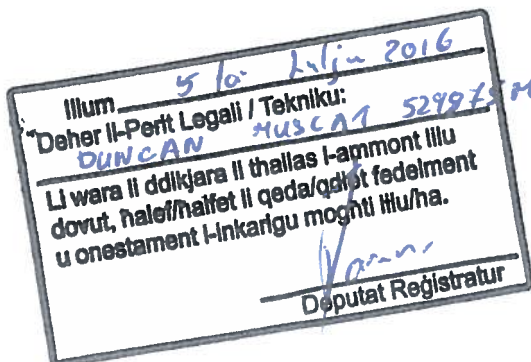 Illum 5 ta' Lulju 2016
Deher il-Perit Legali / Tekniku:
DUNCAN MUSCAT 529975M
Li wara li ddikjara li thallas l-ammont lilu
dovut, ħalef/ħalfet li qeda/qdiet fedelment
u onestament l-inkarigu mogħti lilu/ha.
Deputat Reġistratur